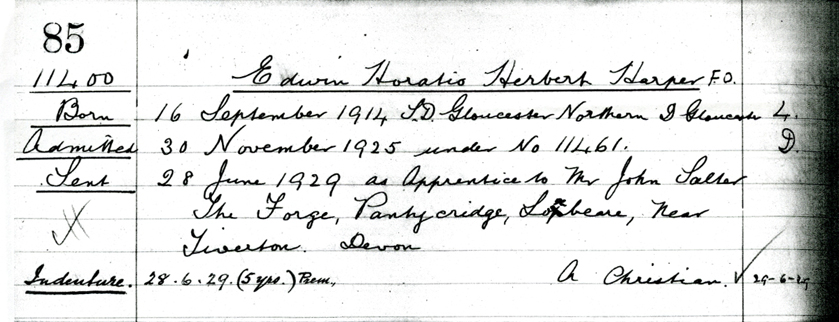 85
11400 Edwin Horatio Herbert Harper F.O.
Born 16 September 1914 S.D. Gloucester Northern D Gloucester L.
Admitted 30 November 1925 under No 11461. D.
Sent 28 June 1929 as Apprentice to Mr John Salter
The Forge, Pantycridge, near
Tiverton. Devon
Indenture. 28.6.29. (5 yrs.) Prem. A Christian. 29-6-29